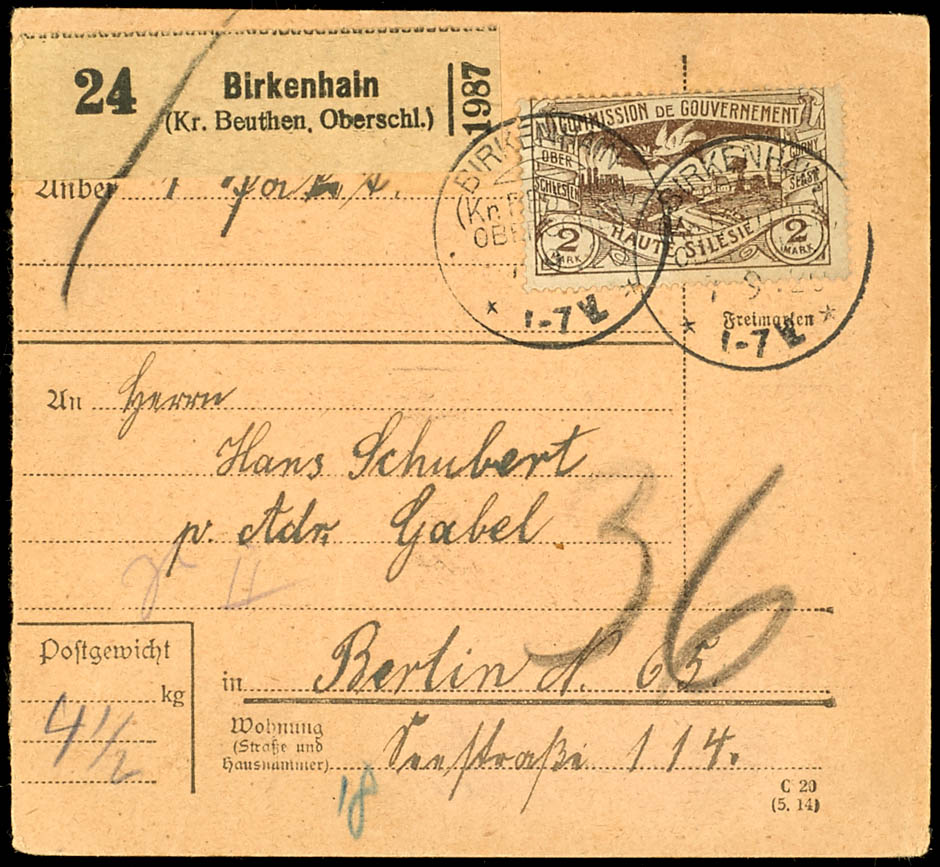 24
Birkenhain
(Kr. Beuthen, Oberschl.)
1987
COMMISSION DE GOUVERNEMENT
OBER
SCHLESIEN
GÓRNY
ŚLĄSK
2
MARK
HAUTE SILÉSIE
2
MARK
BIRKENHAIN
(Kr. BE
OBER
* 1-7 V. *
BIRKENHAIN
9
* 1-7 V. *
Freimarken
An Herrn
Hans Schubert
p. Adr. Gabel.
36
II
Postgewicht
kg
4 1/2
in Berlin N. 65.
Wohnung
(Straße und
Hausnummer)
Seestraße 114.
18
C 20
(5. 14)